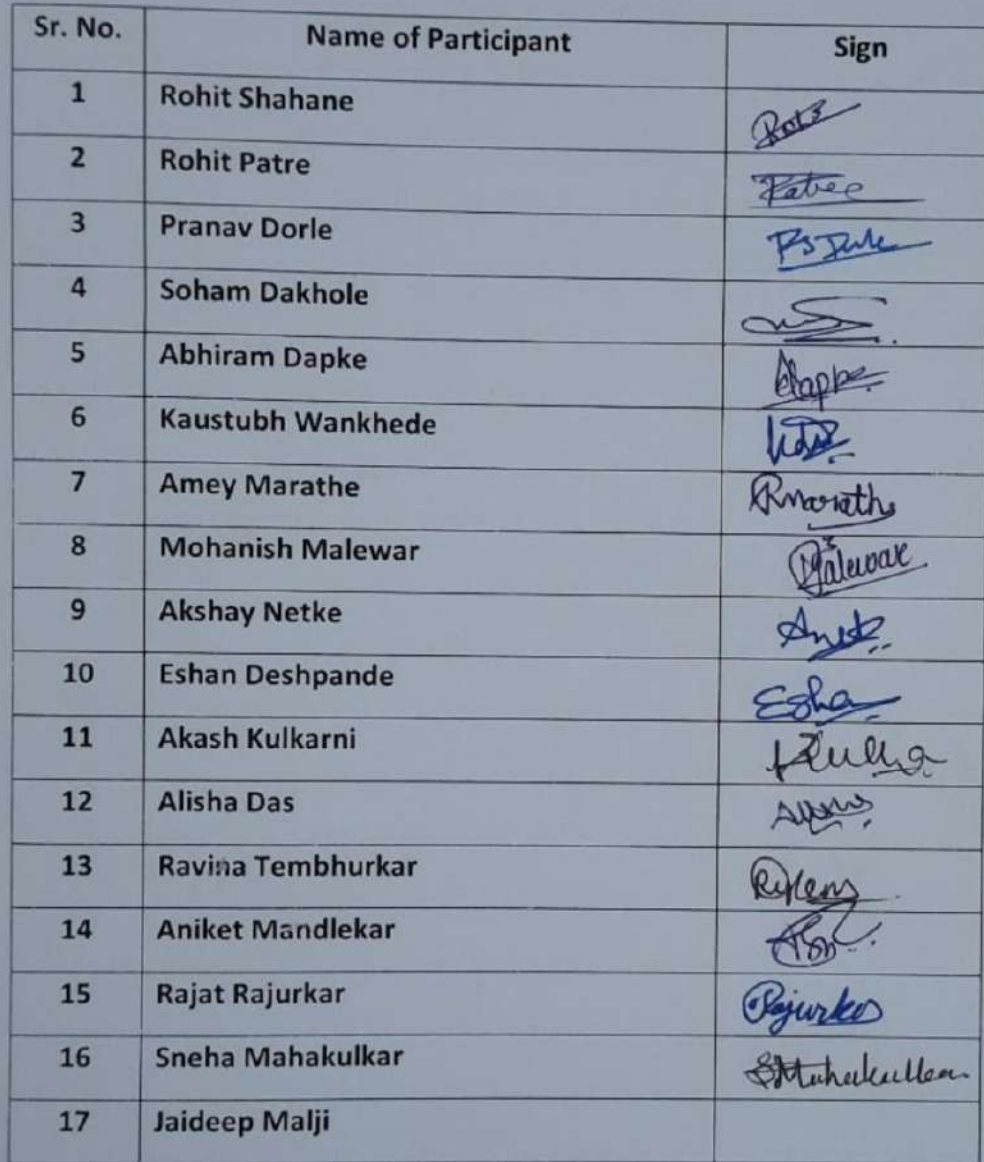 Sr. No. Name of Participant Sign
1 Rohit Shahane
2 Rohit Patre
3 Pranav Dorle
4 Soham Dakhole
5 Abhiram Dapke
6 Kaustubh Wankhede
7 Amey Marathe
8 Mohanish Malewar Malewar
9 Akshay Netke
10 Eshan Deshpande
11 Akash Kulkarni
12 Alisha Das
13 Ravina Tembhurkar
14 Aniket Mandlekar
15 Rajat Rajurkar
16 Sneha Mahakulkar
17 Jaideep Malji